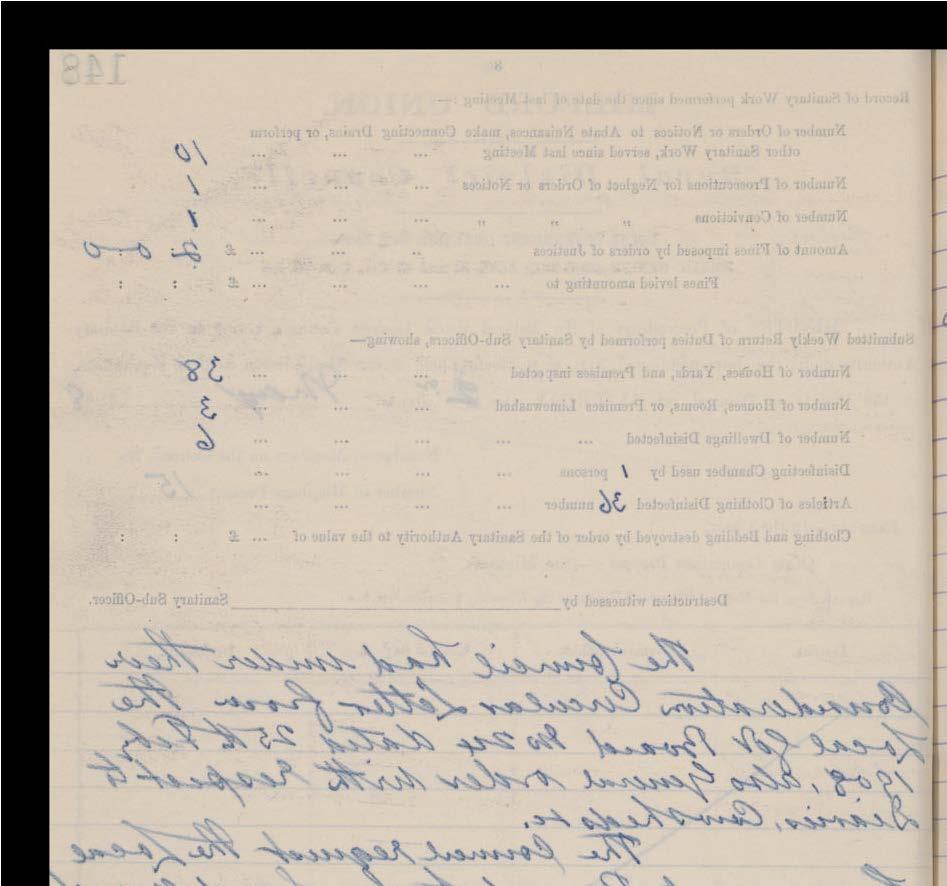 148
8
Record of Sanitary Work performed since the date of last Meeting :—
Number of Orders or Notices to Abate Nuisances, make Connecting Drains, or perform
other Sanitary Work, served since last Meeting ... ... ... 10
Number of Prosecutions for Neglect of Orders or Notices ... ... ... 1
Number of Convictions „ „ „ ... ... ... 1
Amount of Fines imposed by orders of Justices .. ... ... £ 2 : 0 : 0
Fines levied amounting to ... ... ... ... £ : :
Submitted Weekly Return of Duties performed by Sanitary Sub-Officers, showing—
Number of Houses, Yards, and Premises inspected ... ... ... 38
Number of Houses, Rooms, or Premises Limewashed ... ... ... 3
Number of Dwellings Disinfected ... ... ... ... ... 6
Disinfecting Chamber used by 1 persons ... ... ... ...
Articles of Clothing Disinfected 36 number ... ... ... ...
Clothing and Bedding destroyed by order of the Sanitary Authority to the value of ... £ : :
Destruction witnessed by Sanitary Sub-Officer.
The Council had under their
Consideration Circular Letter from the
Local Govt Board No 24 dated 25th Feby
1908, also General order with respect to
Dairies, Cowsheds &c.
The Council request the Local